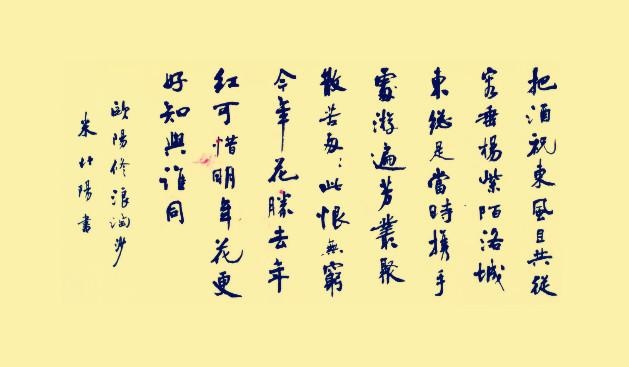 把酒祝東風且共從
容垂楊紫陌洛城
東總是當時攜手
處游遍芳叢聚
散苦匆匆此恨無窮
今年花勝去年
紅可惜明年花更
好知與誰同
歐陽修浪淘沙
陽書